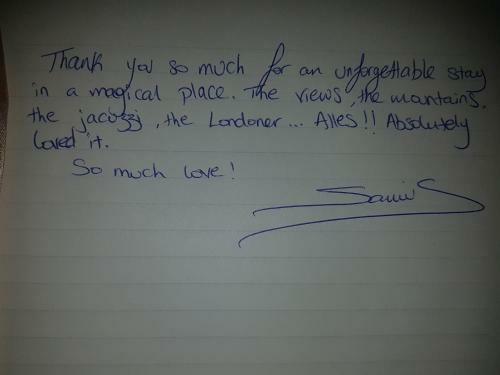 Thank you so much for an unforgettable stay
in a magical place. The views, the mountains,
the jacuzzi, the Londoner... Alles!! Absolutely
loved it.
So much love!